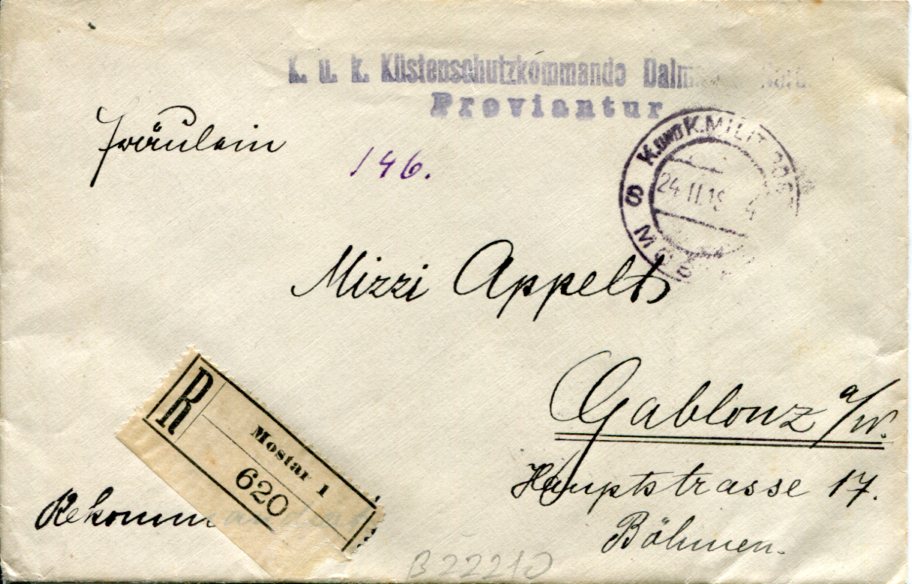 K. u. k. Küstenschutzkommando
Proviantur
Fräulein
146.
K. UND K. MILIT
24. II. 19
S
Mizzi Appelt
Gablonz a/N.
Hauptstrasse 17.
Böhmen.
R
Mostar 1
620
B22210